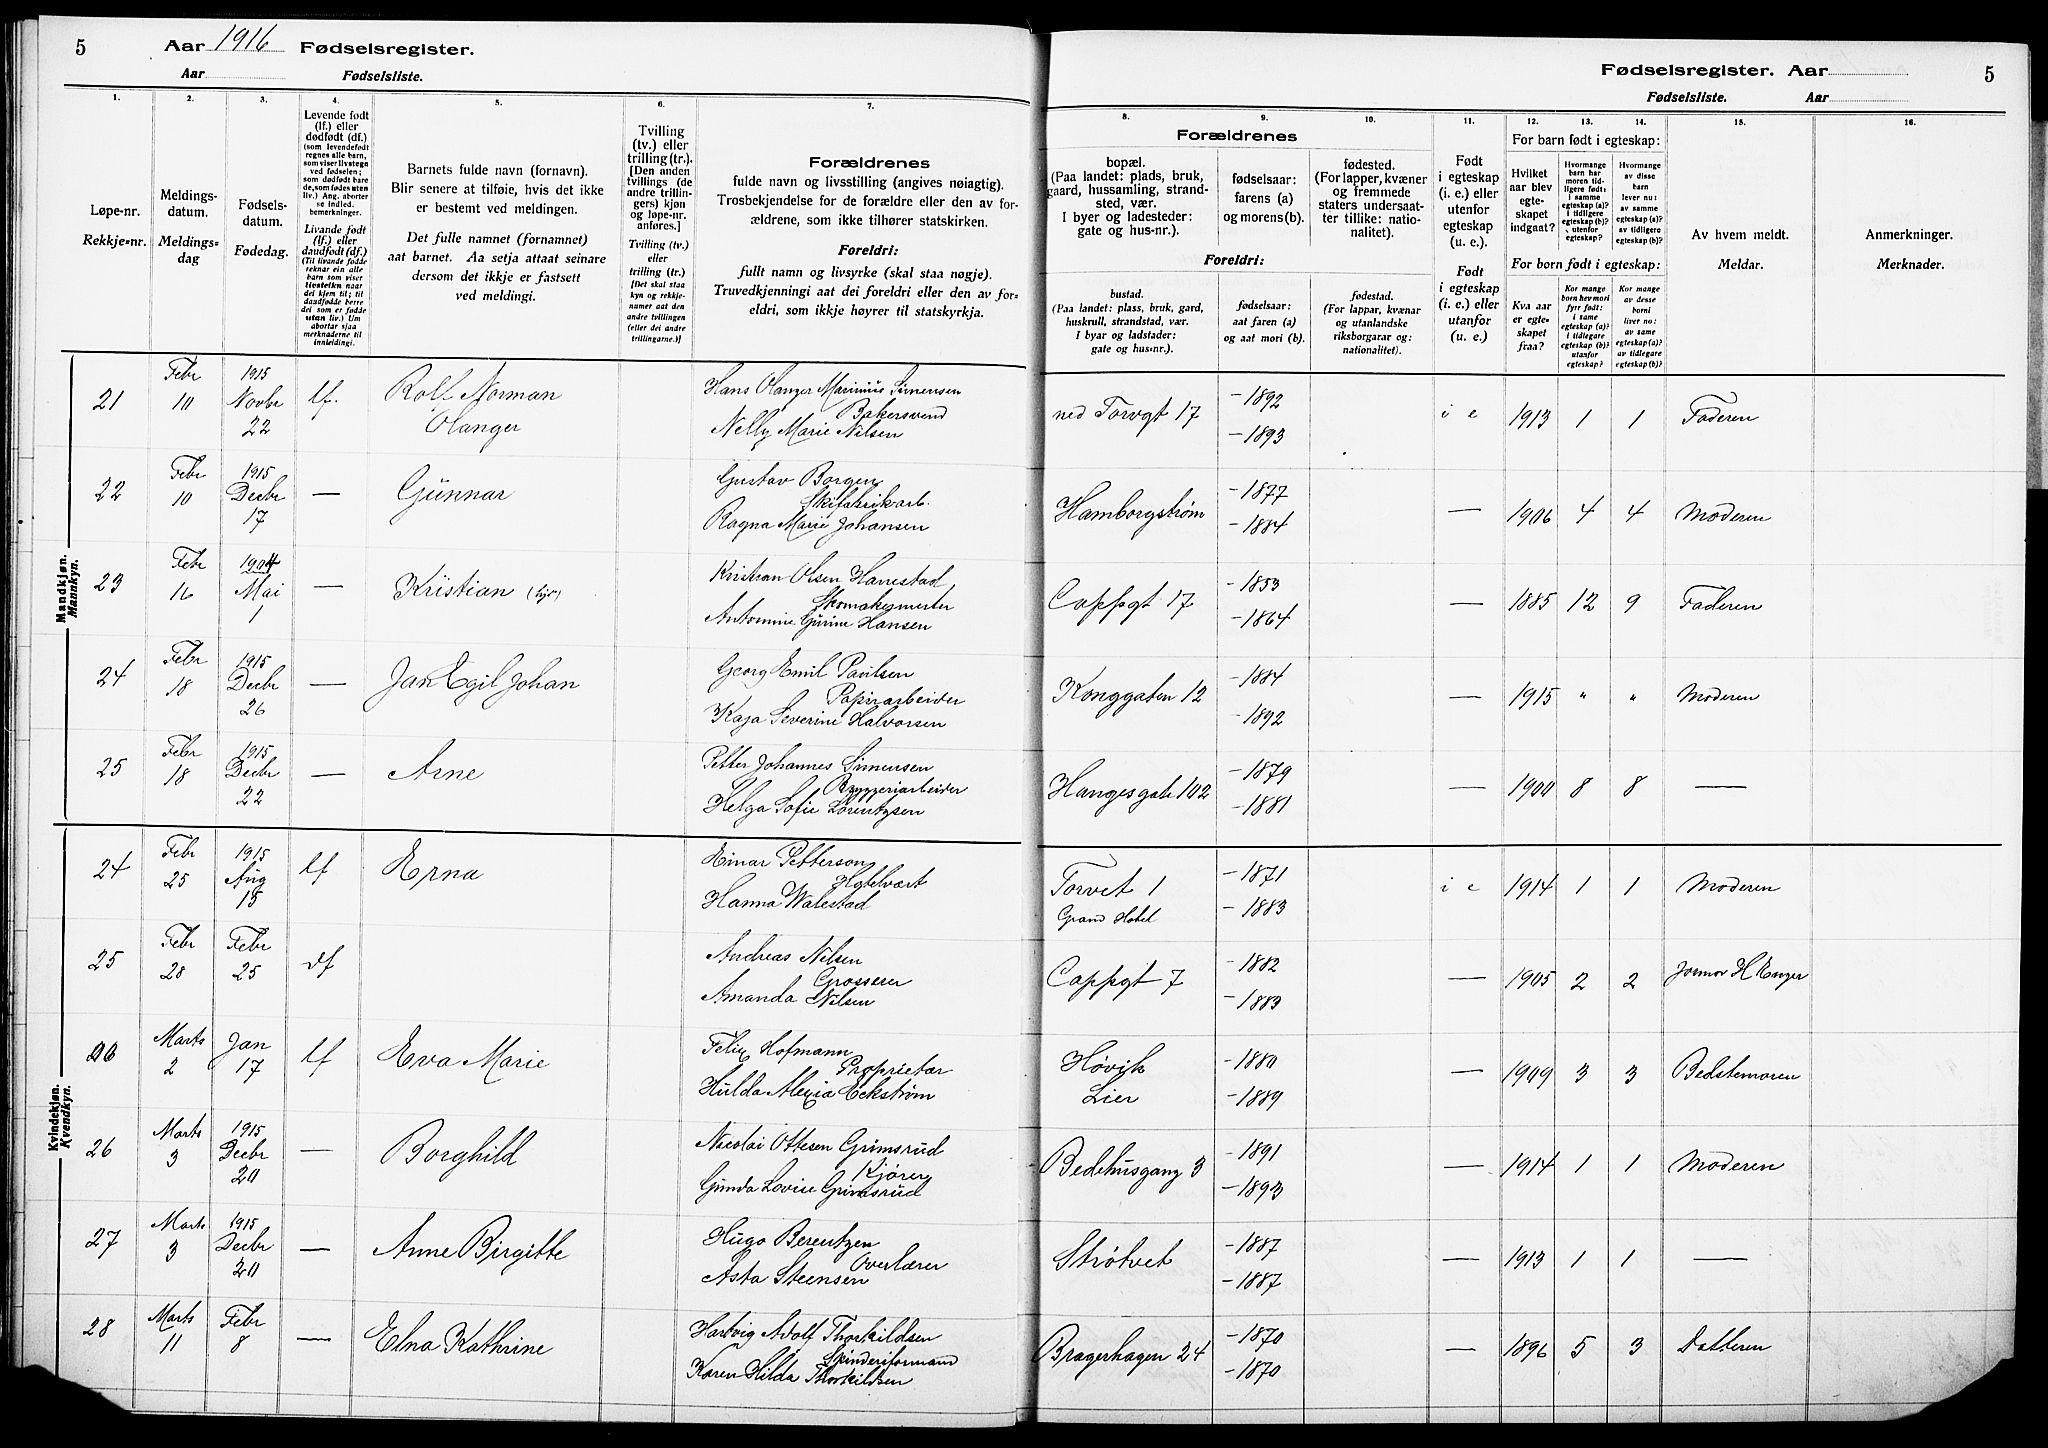 5 Aar 1916 Fødselsregister.
Aar Fødselsliste.
Fødselsregister. Aar 5
Fødselsliste. Aar
1. 2. 3. 4. 5. 6. 7. 8. 9. 10. 11. 12. 13. 14. 15. 16.
Løpe-nr.
Rekkje=nr.
Meldings-
datum.
Meldings=
dag
Fødsels-
datum.
Fødedag.
Levende født
(lf.) eller
dødfødt (df.)
(som levendefødt
regnes alle barn,
som viser livstegn
ved fødselen;
som dødfødt bare
de, som fødes uten
liv.) Ang. aborter
se indled.
bemerkninger.
Livande født
(lf.) eller
daudfødt (df.)
(Til livande fødde
reknar ein alle
barn som viser
livsteikn naar
dei kjem til; til
daudfødde berre
dei som er fødde
utan liv.) Um
abortar sjaa
merknaderne til
innleidingi.
Barnets fulde navn (fornavn).
Blir senere at tilføie, hvis det ikke
er bestemt ved meldingen.
Det fulle namnet (fornamnet)
aat barnet. Aa setja attaat seinare
dersom det ikkje er fastsett
ved meldingi.
Tvilling
(tv.) eller
trilling (tr.).
[Den anden
tvillings (de
andre trillin-
gers) kjøn
og løpe-nr.
anføres.]
Tvilling (tv.)
eller
trilling (tr.)
[Det skal staa
kyn og rekkje-
numer aat den
andre tvillingen
(eller dei andre
trillingarne.)]
Forældrenes
fulde navn og livsstilling (angives nøiagtig).
Trosbekjendelse for de forældre eller den av for-
ældrene, som ikke tilhører statskirken.
Foreldri:
fullt namn og livsyrke (skal staa nøgje).
Truvedkjenningi aat dei foreldri eller den av for=
eldri, som ikkje høyrer til statskyrkja.
Forældrenes
bopæl.
(Paa landet: plads, bruk,
gaard, hussamling, strand-
sted, vær.
I byer og ladesteder:
gate og hus-nr.).
fødselsaar:
farens (a)
og morens (b).
fødested.
(For lapper, kvæner
og fremmede
staters undersaat-
ter tillike: natio-
nalitet).
Foreldri:
bustad.
(Paa landet: plass, bruk, gard,
huskrull, strandstad, vær.
I byar og ladstader:
gate og hus=nr.).
fødselsaar:
aat faren (a)
og aat mori (b).
fødestad.
(For lappar, kvænar
og utanlandske
riksborgarar og:
nationalitet).
Født
i egteskap
(i. e.) eller
utenfor
egteskap
(u. e.).
Født
i egteskap
(i. e.) eller
utanfor
(u. e.).
For barn født i egteskap:
Hvilket
aar blev
egte-
skapet
indgaat?
Hvormange
barn har
moren tid-
ligere født:
i samme
egteskap (a)?
i tidligere
egteskap (b)?
utenfor
egteskap?
Hvormange
av disse
barn
lever nu:
av samme
egteskap (a)?
av tidligere
egteskap (b)?
For born født i egteskap:
Kva aar
er egte-
skapet
fraa?
Kor mange
born hev mori
fyrr født:
i same
egteskap (a)?
i tidlegare
egteskap (b)?
utanfor
egteskap?
Kor mange
av desse
borni
liver no:
av same
egteskap (a)?
av tidlegare
egteskap (b)?
Av hvem meldt.
Meldar.
Anmerkninger.
Merknader.
Mandkjøn.
Mannkyn.
21 Febr 10 1915 Novbr 22 lf. Rolf Norman Olanger Hans Olanger Marinius Simensen Bakersvend Nelly Marie Nilsen ned Torvgt 17 -1892 -1893 i e 1913 1 1 Faderen
22 Febr 10 1915 Decbr 17 — Gunnar Gustav Borgen Skifabrikarb. Ragna Marie Johansen Hamborgstrøm -1877 -1884 — 1906 4 4 Moderen
23 Febr 16 1904 Mai 1 — Kristian Kristian Olsen Hanestad Skomakermester Antomine Gurine Hansen Cappgt 17 -1853 -1864 — 1885 12 9 Faderen
24 Febr 18 1915 Decbr 26 — Jan Egil Johan Georg Emil Paulsen Papirarbeider Kaja Severine Halvorsen Konggaten 12 -1884 -1892 — 1915 " " Moderen
25 Febr 18 1915 Decbr 22 — Arne Petter Johannes Simensen Bryggeriarbeider Helga Sofie Lorentzsen Haugesgate 102 -1879 -1881 — 1900 8 8 —
Kvindekjøn.
Kvendkyn.
24 Febr 25 1915 Aug 15 lf Erna Einar Petterson Hotelvært Hanna Walestad Torvet 1 Grand Hotel -1871 -1883 i e 1914 1 1 Moderen
25 Febr 28 Febr 25 df Andreas Nilsen Grosserer Amanda Nilsen Cappgt 7 -1882 -1883 — 1905 2 2 Jormor H Enger
26 Marts 2 Jan 17 lf Eva Marie Felix Hofmann Proprietær Hulda Alexia Eckstrøm Høvik Lier -1880 -1889 — 1909 3 3 Bedstemoren
26 Marts 3 1915 Decbr 20 — Borghild Nicolai Ottesen Grimsrud Kjører Gunda Lovise Grimsrud Bedehusgang 3 -1891 -1893 — 1914 1 1 Moderen
27 Marts 3 1915 Decbr 20 — Anne Birgitte Hugo Berentzen Overlærer Asta Steensen Strøtvet -1887 -1887 — 1913 1 1 —
28 Marts 11 Febr 8 — Elna Kathrine Hartvig Adolf Thorkildsen Spinderiformand Karen Hilda Thorkildsen Bragerhagen 24 -1870 -1870 — 1896 5 3 Datteren